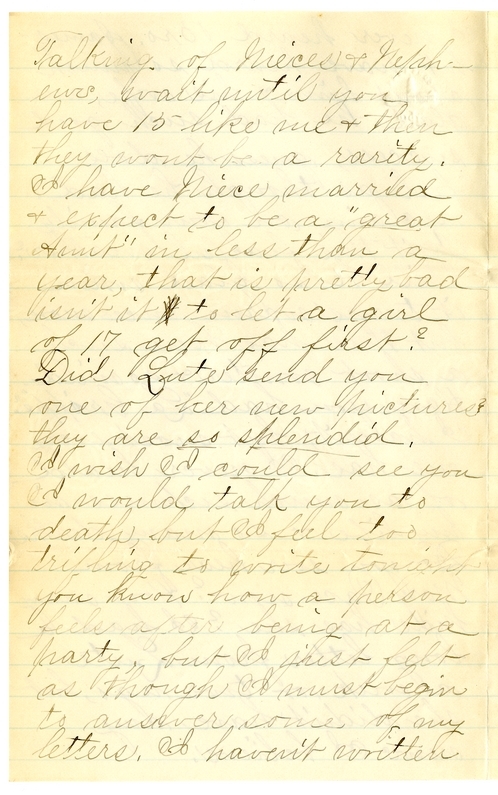 Talking of Nieces & Neph-
ews, wait until you
have 15 like me & then
they wont be a rarity.
I have Niece married
& expect to be a "great
Aunt" in less than a
year, that is pretty bad
isn't it to let a girl
of 17 get off first?
Did Lute send you
one of her new pictures?
they are so splendid.
I wish I could see you
I would talk you to
death, but I feel too
trifling to write tonight
you know how a person
feels after being at a
party, but I just felt
as though I must begin
to answer some of my
letters. I haven't written